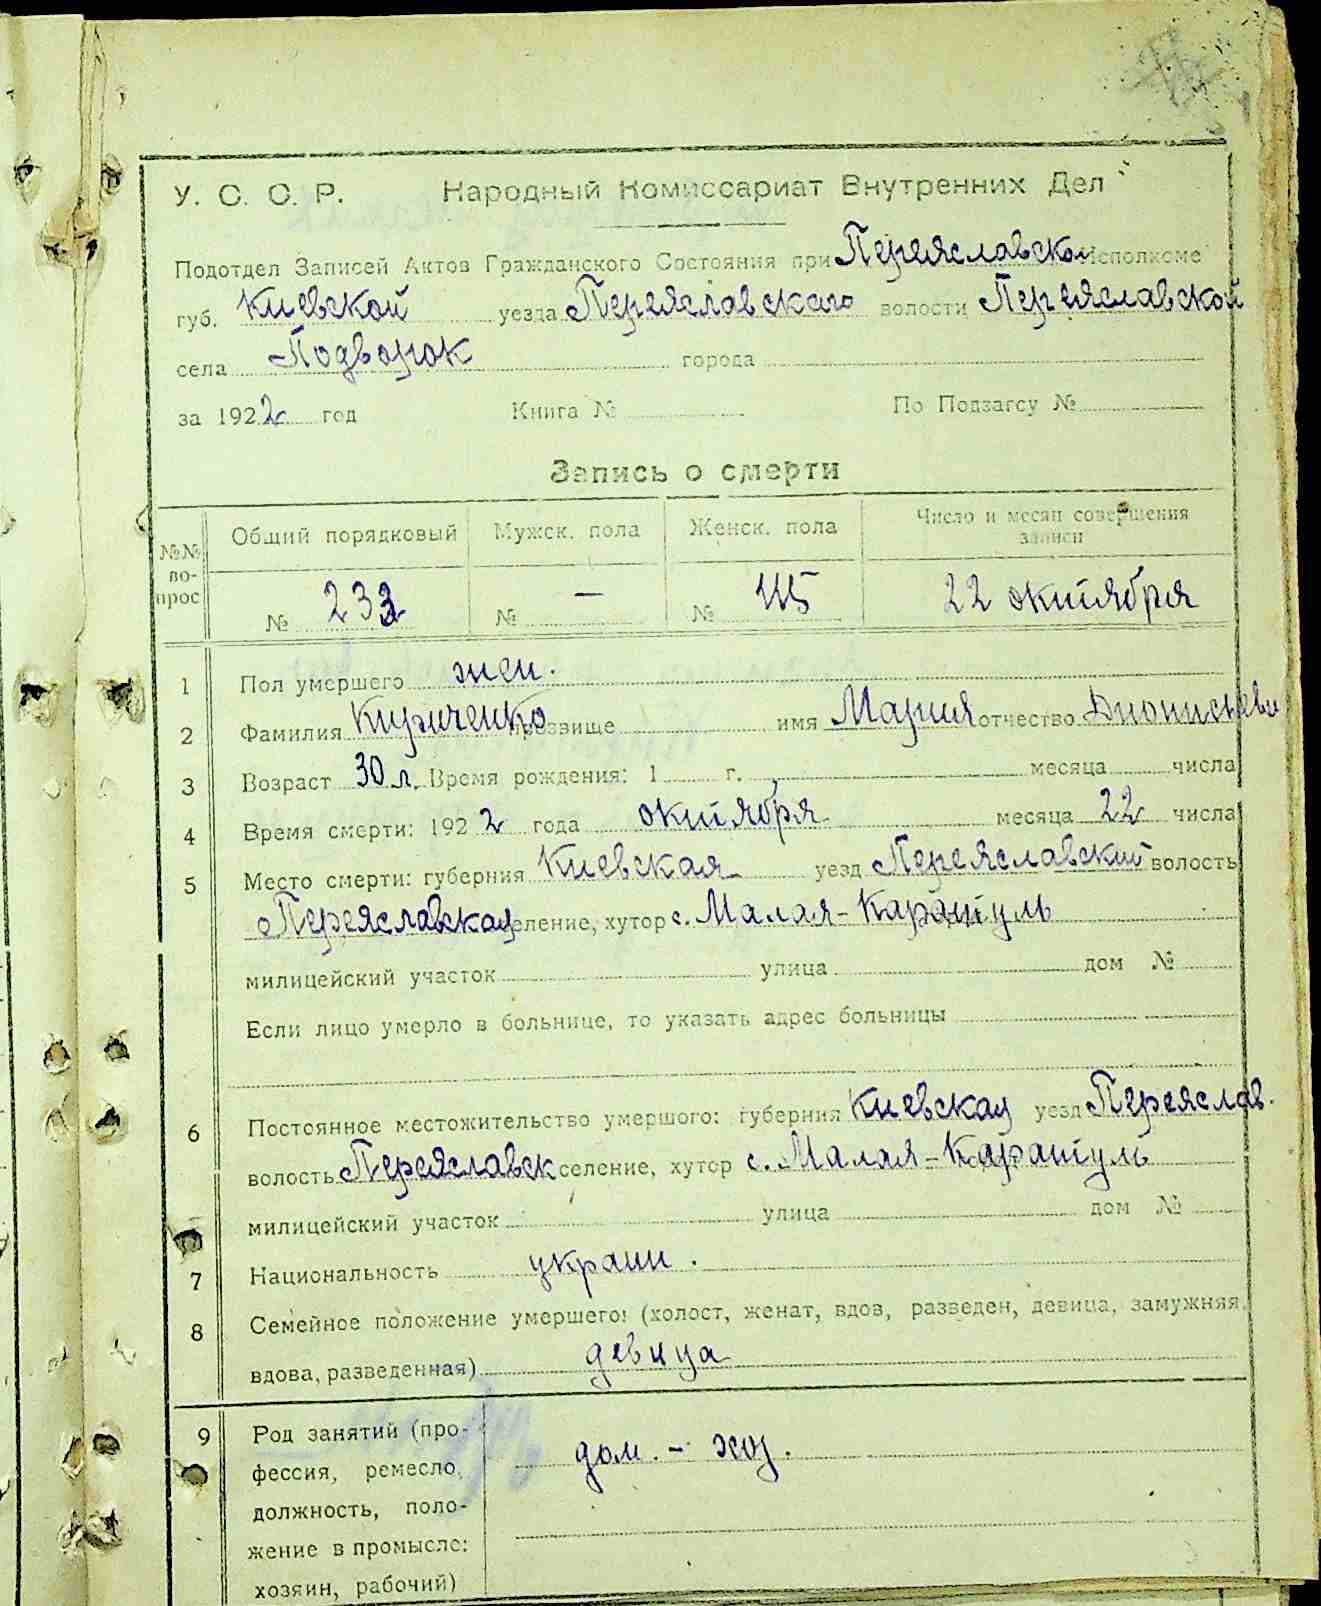 У. С. С. Р. Народный Комиссариат Внутренних Дел
Подотдел Записей Актов Гражданского Состояния при Переяславском Исполкоме
губ. Киевской уезда Переяславскаго волости Переяславской
села Подворок города
за 1922 год Книга № По Подзагсу №
Запись о смерти
№№ вопрос Общий порядковый Мужск. пола Женск. пола Число и месяц совершения записи
№ 232 № — № 115 22 октября
1 Пол умершего жен.
2 Фамилия Кириченко прозвище имя Мария отчество Дионисьева
3 Возраст 30 л. Время рождения: 1 г. месяца числа
4 Время смерти: 1922 года октября месяца 22 числа
5 Место смерти: губерния Киевская уезд Переяславский волость
Переяславская селение, хутор с. Малая-Каратуль
милицейский участок улица дом №
Если лицо умерло в больнице, то указать адрес больницы
6 Постоянное местожительство умершого: губерния Киевская уезд Переяслав.
волость Переяславск селение, хутор с. Малая-Каратуль
милицейский участок улица дом №
7 Национальность украин.
8 Семейное положение умершего: (холост, женат, вдов, разведен, девица, замужняя,
вдова, разведенная) девица
9 Род занятий (про- дом. - хоз.
фессия, ремесло,
должность, поло-
жение в промысле:
хозяин, рабочий)